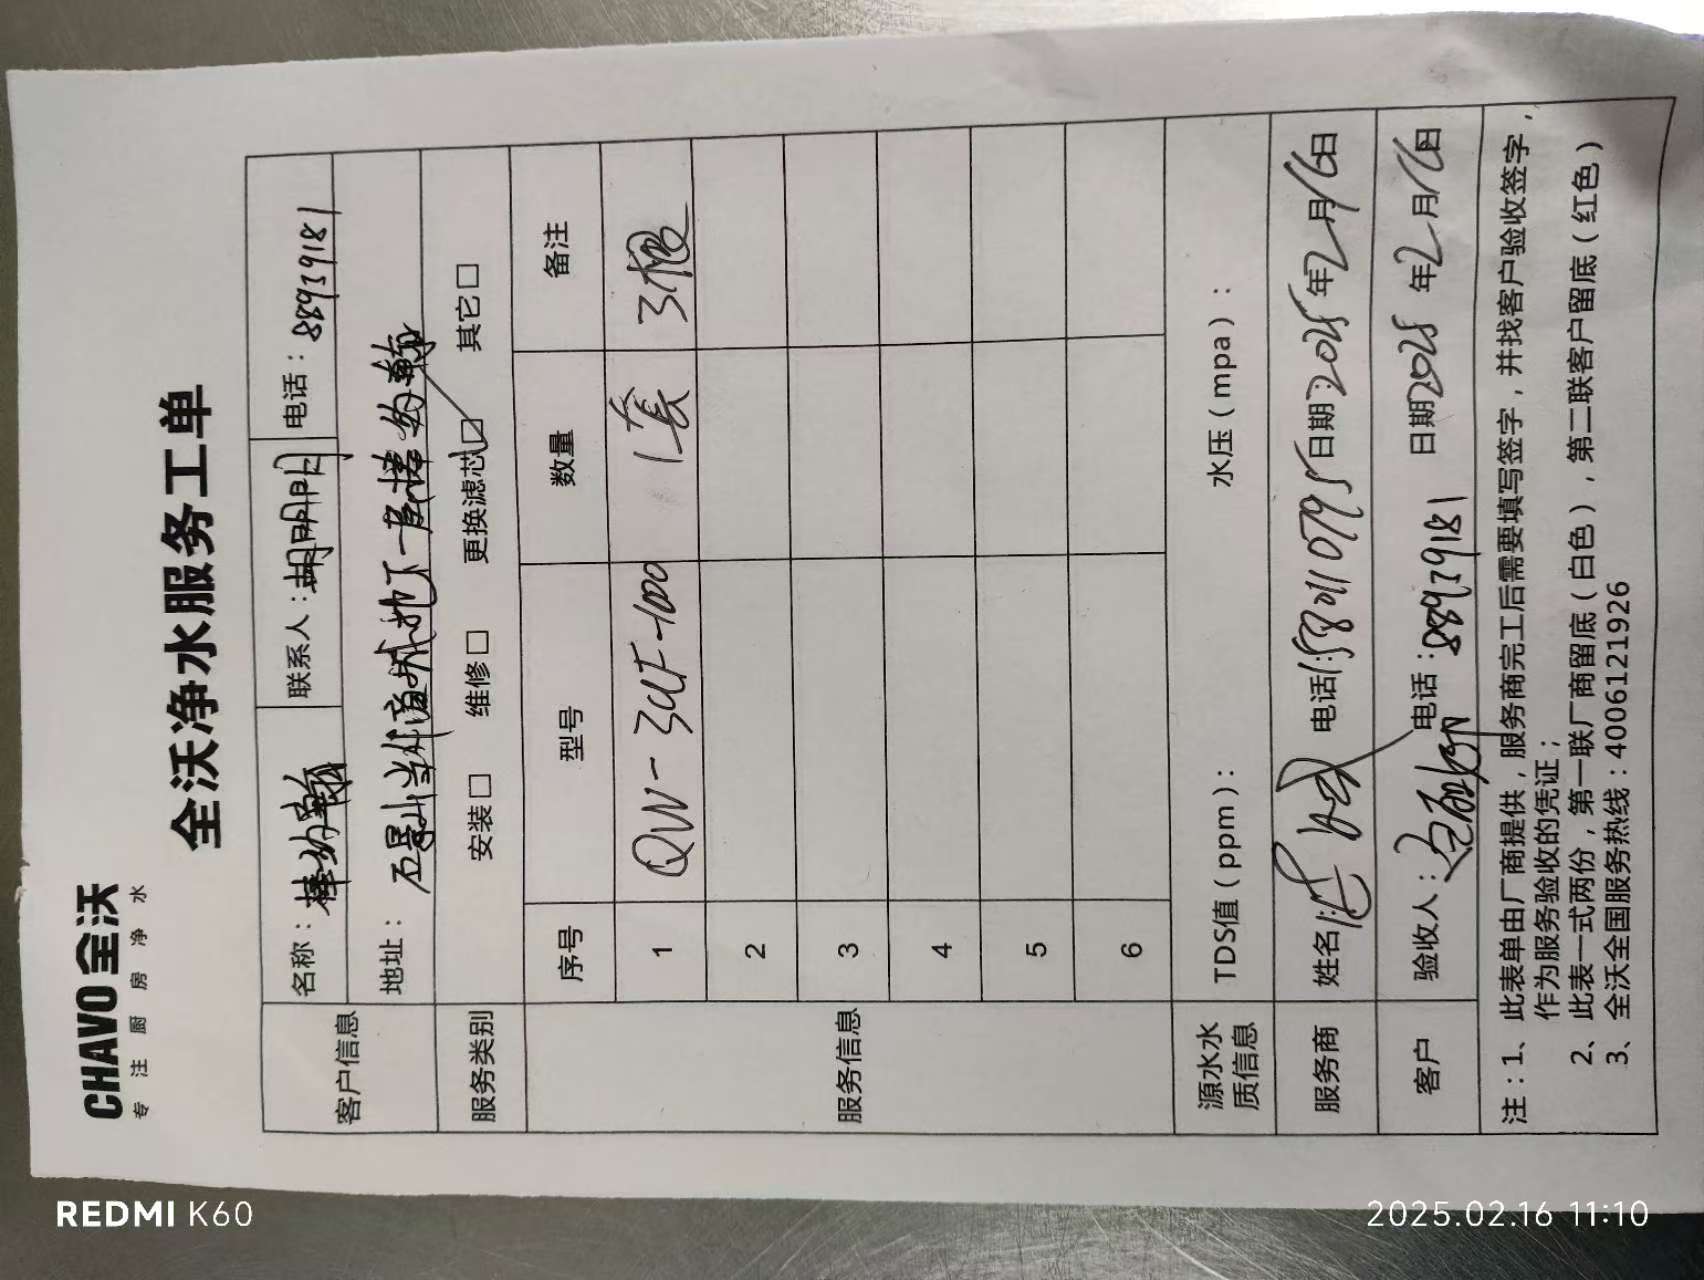 CHAVO 全沃
专注厨房净水
全沃净水服务工单
客户信息 名称：棒约翰 联系人：胡明明 电话：88939181
地址：石景山当代商城地下一层棒约翰
服务类别 安装□ 维修□ 更换滤芯☑ 其它□
服务信息 序号 型号 数量 备注
1 QW-3UF-1000 1套 3根
2
3
4
5
6
源水水质信息 TDS值（ppm）： 水压（mpa）：
服务商 姓名： 电话： 日期：2025年2月16日
客户 验收人： 电话：88939181 日期2025年2月16日
注：1、此表单由厂商提供，服务商完工后需要填写签字，并找客户验收签字，
作为服务验收的凭证；
2、此表一式两份，第一联厂商留底（白色），第二联客户留底（红色）
3、全沃全国服务热线：4006121926
REDMI K60
2025.02.16 11:10